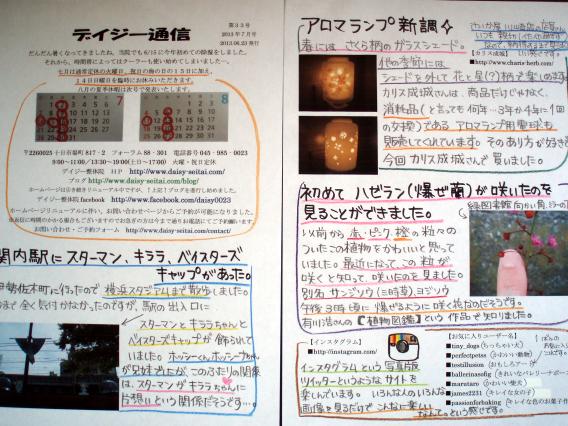 デイジー通信
第33号
2013年7月号
2013.06.23 発行
だんだん暑くなってきましたね。当院でも6/15に今年初めての除湿をしました。
それから、時間帯によってはクーラーも使い始めてしまいました…。
七月は通常定休の火曜日、祝日の海の日の15日に加え、
14日日曜日を臨時にお休みいただきます。
八月の夏季休暇は次号で発表いたします。
7
8
〒2260025 十日市場町 817-2 フォーラム 88-301 電話番号 045-985-0023
9:00~11:00/13:30~19:00(土日~17:00) 火曜・祝日定休
デイジー整体院 HP http://www.daisy-seitai.com/
ブログ http://www.daisy-seitai.com/blog/
ホームページは引き続きリニューアル中ですが、↑上記！ブログを移行し始めました。
デイジー整体院 facebook http://www.facebook.com/daisy0023
ホームページリニューアルに伴い、お問い合わせページからご予約が可能になりました。
お問い合わせ・ご予約フォーム http://www.daisy-seitai.com/contact/
関内駅にスターマン、キララ、ベイスターズ
キャップがあった。
伊勢佐木町に行ったので横浜スタジアムまで散歩しました。
今まで全く気付かなかったですが、駅の出入口に
スターマンとキララちゃんと
ベイスターズキャップが飾られて
いました。ホッシーくん、ホッシーナちゃん
が兄妹でしたが、このふたりの関係
は、スターマンがキララちゃんに
片想いという関係だそうです…。
アロマランプ新調
春には さくら柄のガラスシェード。
他の季節には
シェードを外して花と星(?)柄を楽しめます
カリス成城さんは、商品だけじゃなく、
消耗品(と言っても何年…3年か4年に1回
の交換)であるアロマランプ用電球も
販売してくれています。そのあり方が好きで
今回カリス成城さんで買いました。
【カリス成城】
■http://www.charis-herb.com/
初めてハゼラン(爆ぜ蘭)が咲いたのを
見ることができました。
以前から赤・ピンク・橙の粒々の
ついたこの植物をかわいいと思って
いました。最近になって、この粒が
咲くと知って、咲いたのを見ました。
別名 サンジソウ(三時草)、ヨジソウ
午後3時頃に爆ぜるように咲く花なのだそうです。
有川浩さんの【植物図鑑】という作品で知りました。
【インスタグラム】
■http://instagram.com/
インスタグラムという写真版
ツイッターというようなサイトを
楽しんでいます。いろんな人のいろんな
画像を見るだけでこんなに楽しい
なんて。という感じです。
【お気に入りユーザー名】
■tiny_dogs(ちっちゃい犬)
■perfectpetss(かわいい動物)
■testillusion(おもしろアート)
■marutaro(かわいい柴犬)
■james2231(キレイな女の子)